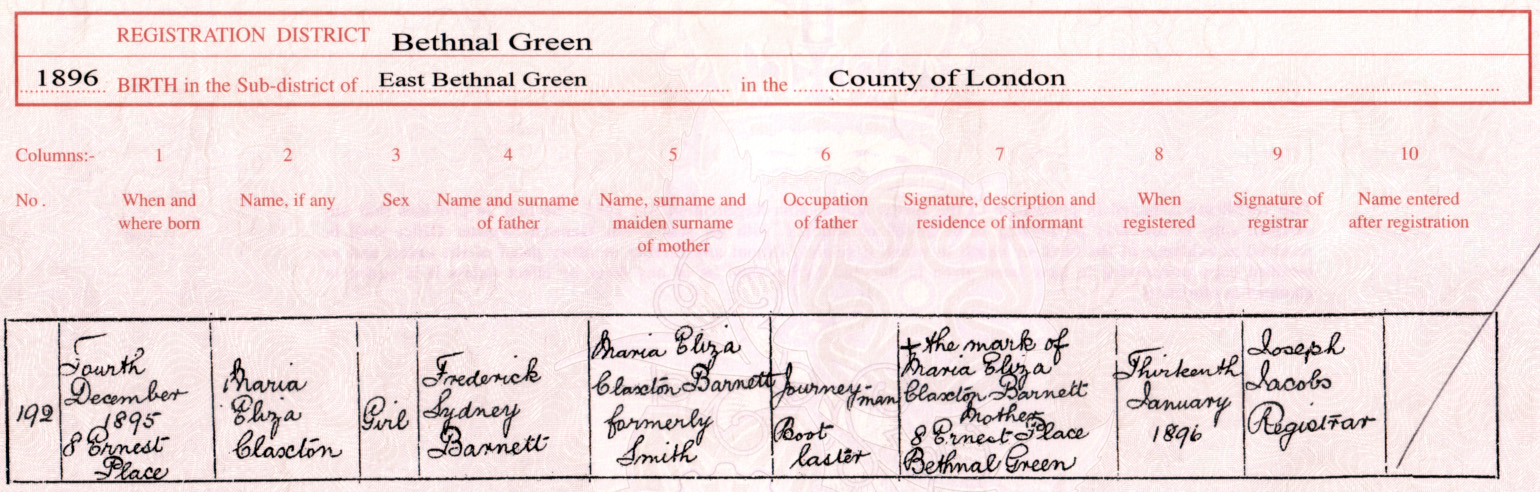 REGISTRATION DISTRICT Bethnal Green
1896 BIRTH in the Sub-district of East Bethnal Green in the County of London
Columns:- 1 2 3 4 5 6 7 8 9 10
No. When and where born Name, if any Sex Name and surname of father Name, surname and maiden surname of mother Occupation of father Signature, description and residence of informant When registered Signature of registrar Name entered after registration
192
Fourth
December
1895
8 Ernest
Place
Maria
Eliza
Claxton
Girl
Frederick
Sydney
Barnett
Maria Eliza
Claxton Barnett
formerly
Smith
Journey-
man
Boot
laster
+ the mark of
Maria Eliza
Claxton Barnett
Mother
8 Ernest Place
Bethnal Green
Thirteenth
January
1896
Joseph
Jacobs
Registrar